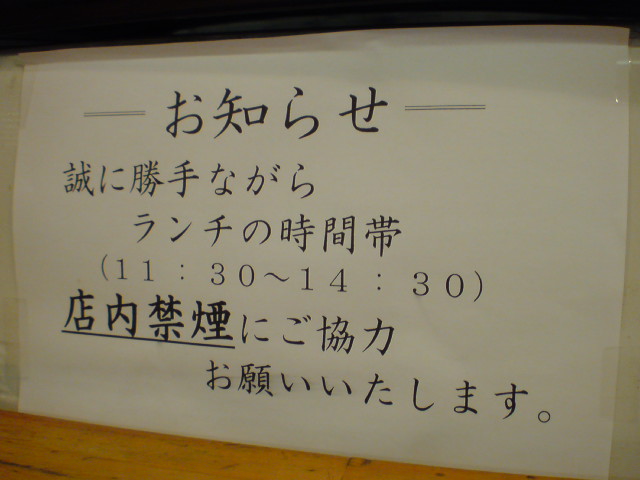 お知らせ
誠に勝手ながら
ランチの時間帯
(11:30~14:30)
店内禁煙にご協力
お願いいたします。